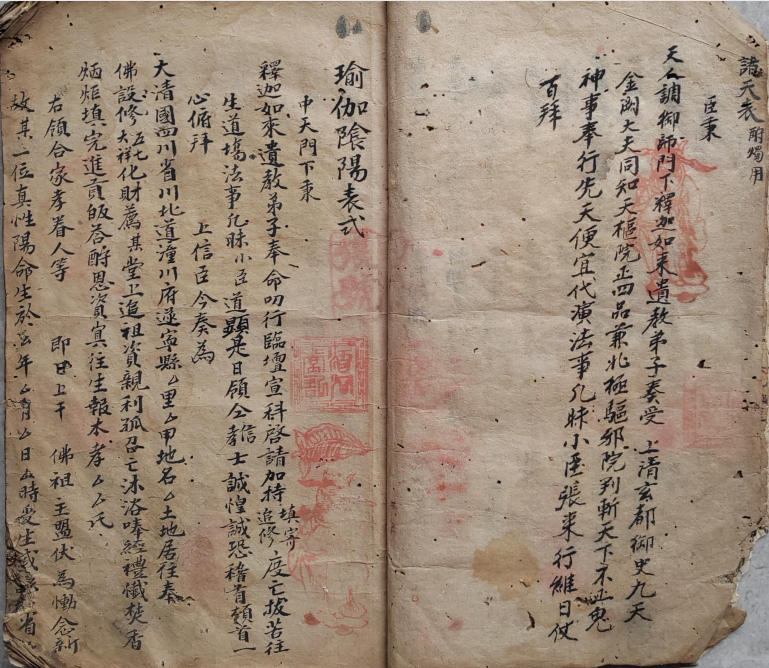 諸天表酧燭用
臣秉
天人調御師門下釋迦如來遺教弟子奏受 上清玄都御史九天
金闕大夫同知天樞院正四品兼北極驅邪院判斬天下不正鬼
神事奉行先天便宜代演法事凡昧小臣張来行維日仗
百拜
瑜伽陰陽表式
中天門下秉
釋迦如來遺教弟子奉命叨行臨壇宣科啓請加持填寄追修度亡拔苦往
生道塲法事凡昧小臣道顯是日領仝孝信士誠惶誠恐稽首頓首一
心俯拜 上信臣今奏為
大清國四川省川北道潼川府遂寧縣厶里厶甲地名厶土地居住奉
佛設修五七大祥化財薦其堂上追祖資親利孤召亡沐浴唪經禮懺焚香
炳炬填完進貢皈荅酧恩資冥往生報本孝厶厶氏
右領合家孝眷人等 即日上干 佛祖主盟伏為慟念新
故其一位真性陽命生於 年厶月厶日厶時受生 省